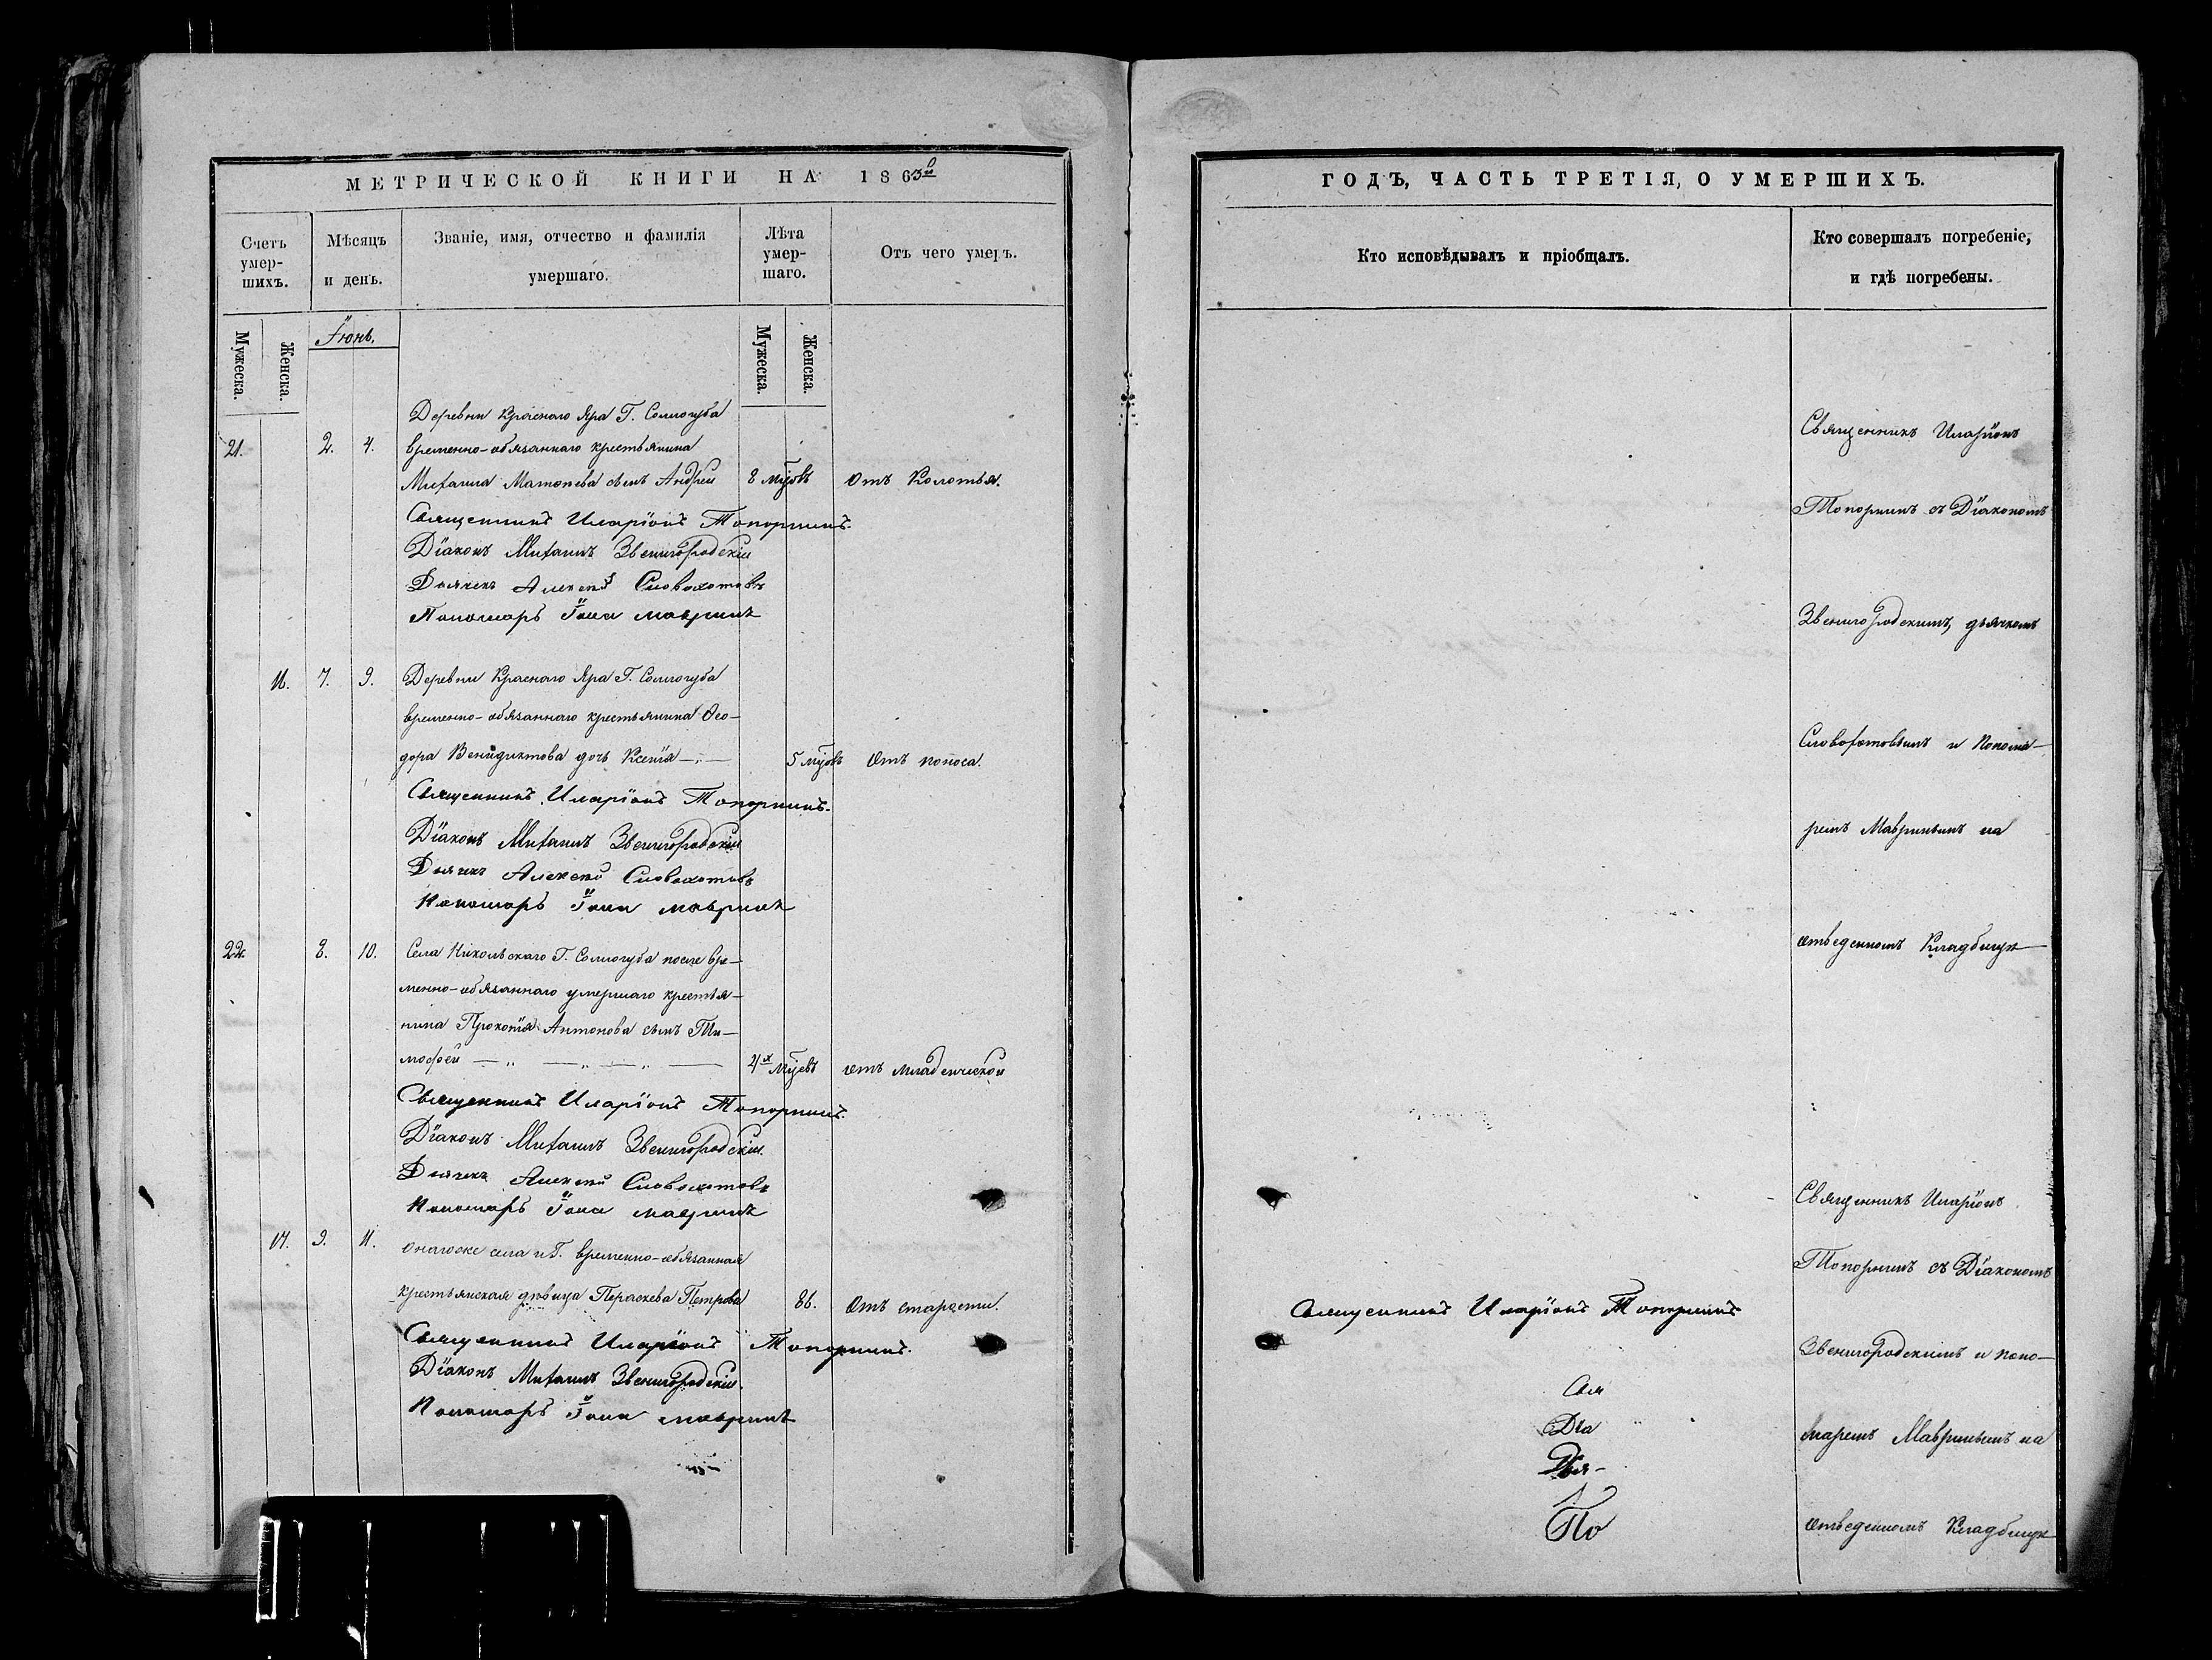 МЕТРИЧЕСКОЙ КНИГИ НА 1863й
Счетъ умер-шихъ.
Мѣсяцъ и день.
Званіе, имя, отчество и фамилія умершаго.
Лѣта умер-шаго.
Отъ чего умеръ.
Мужеска.
Женска.
Іюнь.
Мужеска.
Женска.
Деревни Краснаго Яра Г. Соллогуба
21. 2. 4. временно-обязаннаго крестьянина
Михаила сынъ Андрей 8 мцовъ отъ Колотья.
Священникъ Иларіонъ Топорнинъ.
Діаконъ Михаилъ Звенигородскій
Дьячекъ Алексей Словохотовъ
Пономарь Іона Мавринъ
16. 7. 9. Деревни Краснаго Яра Г. Соллогуба
временно-обязаннаго крестьянина Ѳео-
дора Венидиктова дочь Ксенія 5 мцовъ отъ поноса.
Священникъ Иларіонъ Топорнинъ.
Діаконъ Михаилъ Звенигородскій
Дьячекъ Алексей Словохотовъ
Пономарь Іона Мавринъ
22. 8. 10. Села Никольскаго Г. Соллогуба после вре-
менно-обязаннаго умершаго крестья-
нина Прокопія Антонова сынъ Ти-
мофей 4х мцевъ отъ младенческой
Священникъ Иларіонъ Топорнинъ.
Діаконъ Михаилъ Звенигородскій.
Дьячекъ Алексей Словохотовъ
Пономарь Іона Мавринъ
17. 9. 11. Онагоже села и Г. временно-обязанная
крестьянская дѣвица Параскева Петрова 86. отъ старости.
Священникъ Иларіонъ Топорнинъ.
Діаконъ Михаилъ Звенигородскій.
Пономарь Іона Мавринъ
ГОДЪ, ЧАСТЬ ТРЕТІЯ, О УМЕРШИХЪ.
Кто исповѣдывалъ и пріобщалъ.
Кто совершалъ погребеніе, и гдѣ погребены.
Священникъ Иларіонъ
Топорнинъ съ Діакономъ
Звенигородскимъ, дьячкомъ
Словохотовымъ и Понома-
ремъ Мавринымъ на
отведенномъ Кладбищѣ
Священникъ Иларіонъ
Топорнинъ съ Діакономъ
Священникъ Иларіонъ Топорнинъ
Звенигородскимъ и поно-
Свя
Діа
маремъ Мавринымъ на
Дья-
По
отведенномъ Кладбищѣ